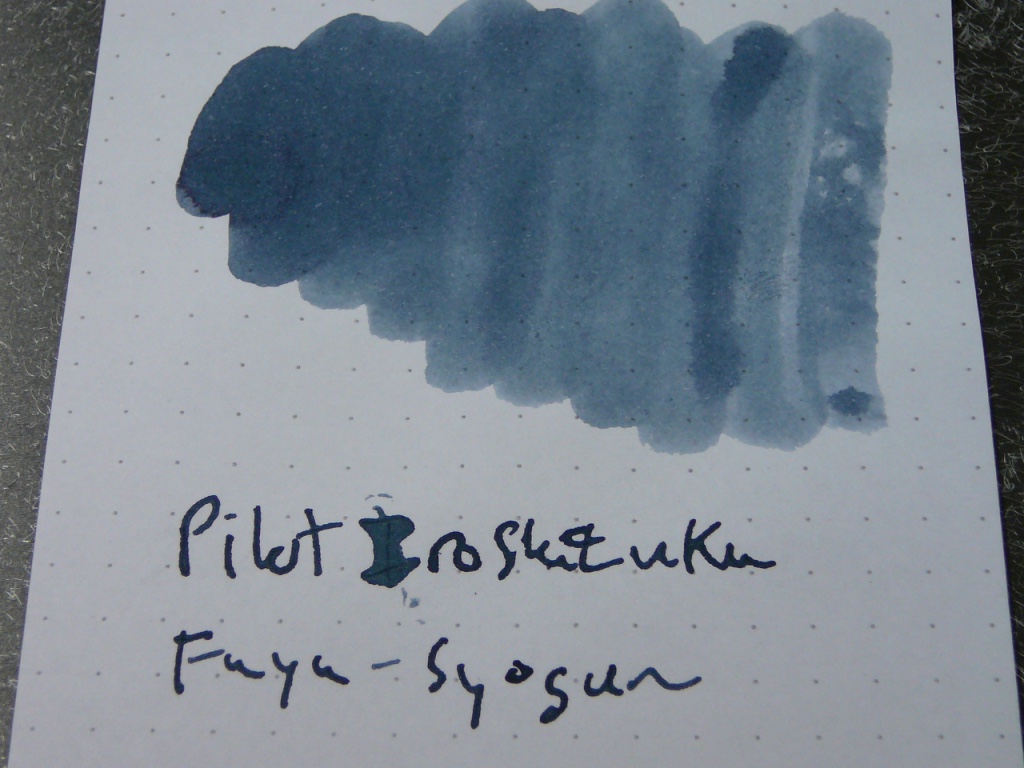 Pilot Iroshizuku
Fuyu-Syogun